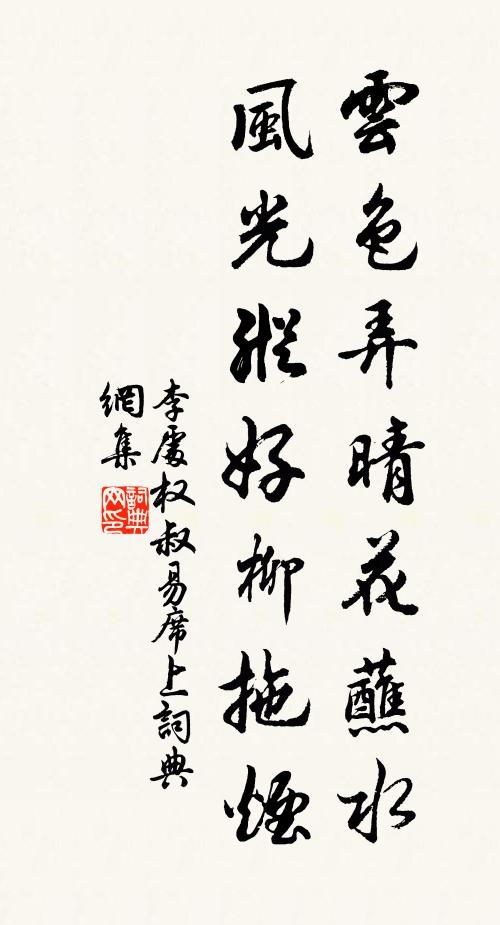 雲色弄晴花蘸水
風光縱好柳拖煙
李處权叔易席上詞典
網集
詞典
网印